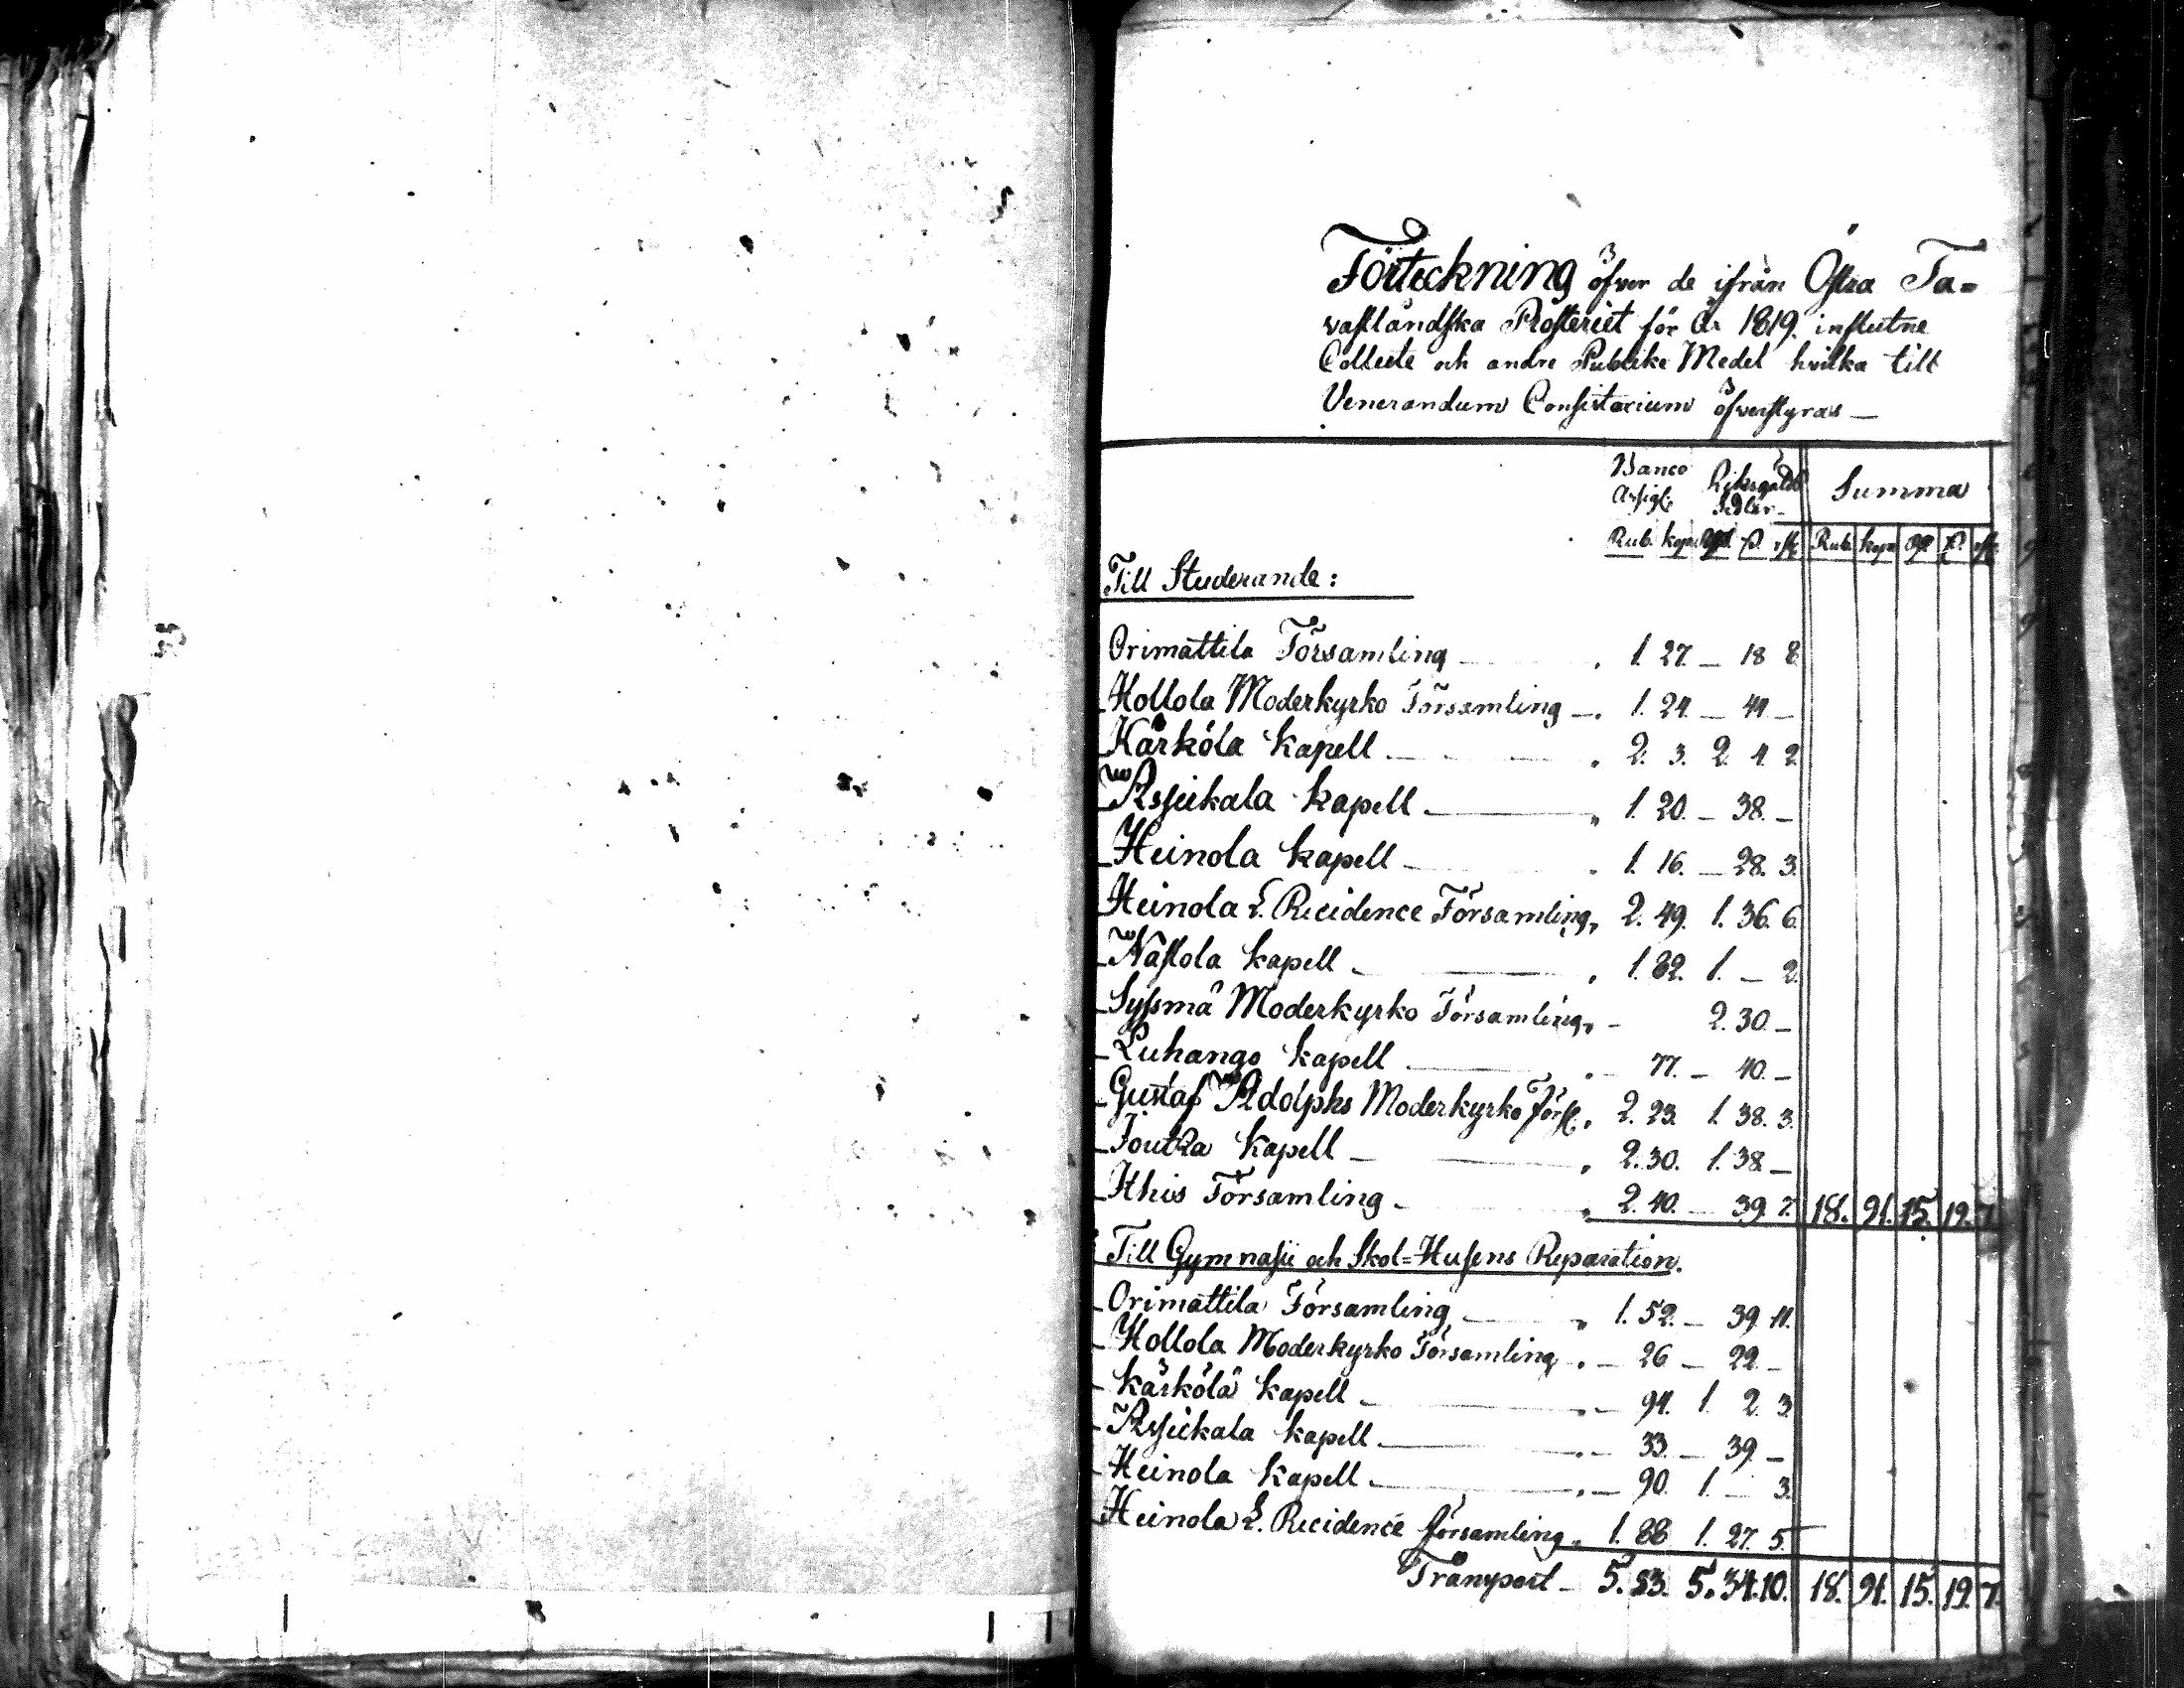 Förteckning öfver de ifrån Östra Ta=
vastländska Prosteriet för År 1819. influtne
Collecte och andre Publike Medel hvilka till
Venerandum Consistorium öfverstyras —
Banco Assign: Riksgälds Sedlar. Summa
Rub. kop. Rd. ß. rst. Rub. kop. Rd. ß. rst.
Till Studerande:
Orimattila Församling — 1. 27. — 18 8
Hollola Moderkyrko Församling — 1. 24. — 44 —
Kärkölä Kapell — 2. 3. 2. 4. 2
Asikkala Kapell — 1. 20. — 38. —
Heinola Kapell — 1. 16. — 28. 3.
Heinola L. Recidence Församling, 2. 49. 1. 36. 6.
Nastola Kapell — 1. 82. 1. — 2.
Syssmä Moderkyrko Församling, — 2. 30. —
Luhango Kapell — 77. — 40. —
Gustaf Adolphs Moderkyrko Förs. 2. 23. 1. 38. 3.
Joutza Kapell — 2. 30. 1. 38 —
Ithis Församling — 2. 40. — 39. 7. 18. 91. 15. 19. 7.
Till Gymnasii och Skol=Husens Reparation.
Orimattila Församling — 1. 52. — 39. 11.
Hollola Moderkyrko Församling. — 26 — 22. —
Kärkölä Kapell — 94. 1. 2. 3
Asikkala Kapell — 33. — 39. —
Heinola Kapell — 90. 1. — 3.
Heinola L. Recidence församling. 1. 88 1. 27. 5.
Transport — 5. 83. 5. 34. 10. 18. 91. 15. 19. 7.